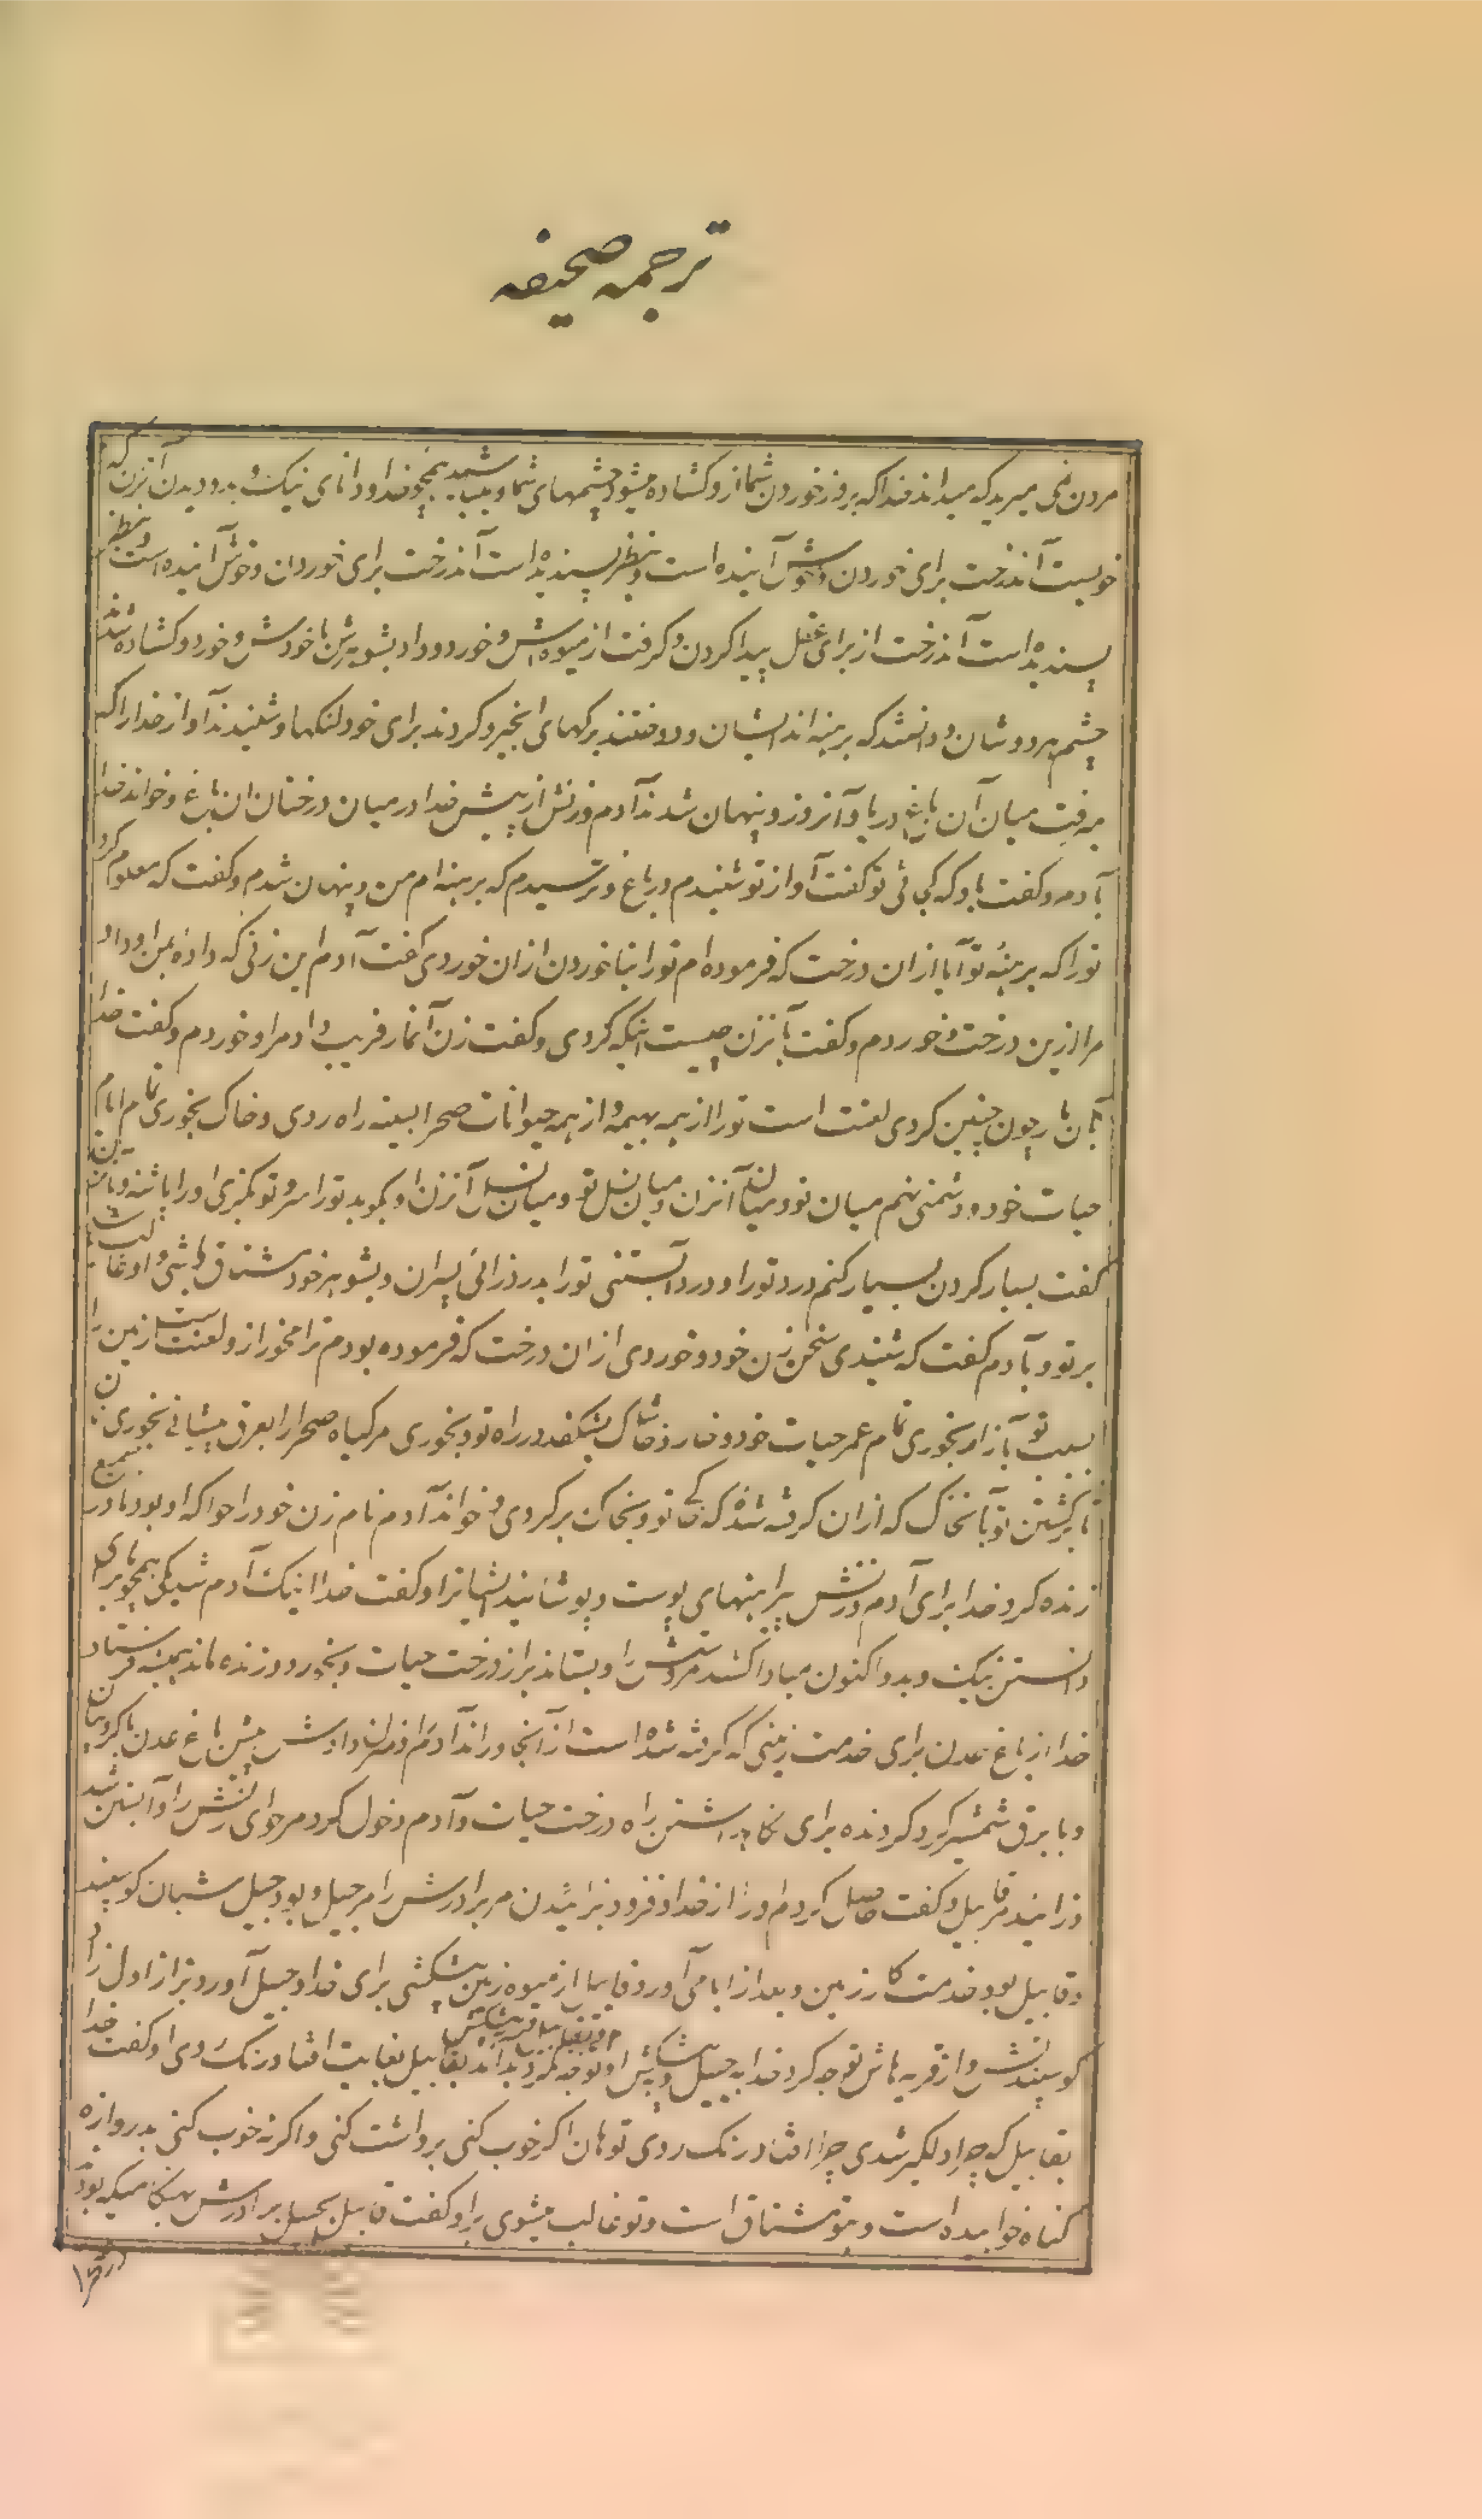 ترجمه صحیفه
مردن نمی میرید که میداند خدا که بروز خوردن شما ازو کشاده میشود چشمهای شما و میباشید همچو خدا و دانای نیک و بد و دیدن آنزن که
خوبست آندرخت برای خوردن و خوش آینده است و بنظر پسندیده است آندرخت برای خوردان و خوش آینده است و بنظر
پسندیده است آندرخت از برای عقل پیدا کردن و کرفت از میوه اش و خورد و داد بشوهرش با خودش و خورد و کشاده شد
چشم هردوشان و دانستند که برهنه اند ایشان و دوختند برکهای انجیر و کردند برای خود لنکها و شنیدند آواز خدا را که
میرفت میان آن باغ در باد آنروز و پنهان شدند آدم و زنش از پیش خدا در میان درختان ان باغ و خواند خدا
بآدم و کفت باو که کجائی تو کفت آواز تو شنیدم در باغ و ترسیدم که برهنه ام من و پنهان شدم و کفت که معلوم کرد
تورا که برهنهٔ تو آیا ازان درخت که فرموده ام تورا بنا خوردن ازان خوردی کفت آدم این زنی که دادهٔ بمن او داد
مرا ازین درخت و خوردم و کفت بآنزن چیست اینکه کردی و کفت زن آنمار فریب داد مرا و خوردم و کفت خدا
بآن مار چون چنین کردی لعنت است تورا از همه بهیمه و از همه حیوانات صحرا بسینه راه روی و خاک بخوری تمام ایام
حیات خود و دشمنی نهم میان تو و میان آنزن و میان نسل تو و میان نسل آنزن او بکوبد تورا سر و تو بکزی او را پاشنه و بآن زن
کفت بسیار کردن بسیار کنم درد تورا و درد آبستنی تورا بدرد زائی پسران و بشوهر خود مشتاق باشی و او غالب باشد
بر تو و بآدم کفت که شنیدی سخن زن خود و خوردی ازان درخت که فرموده بودم ترا مخور ازو لعنت است زمین را
بسبب تو بآزار بخوری تمام عمر حیات خود و خار و خاشاک بشکفد در راه تو و بخوری مر کیاه صحرا را بعرق پیشانی بخوری نان
تا برکشتن تو بآنخاک که ازان کرفته شدهٔ که خاک تو و بخاک برکردی و خواند آدم نام زن خود را حوا که او بود مادر جمیع
زنده کرد خدا برای آدم و زنش پیراهنهای پوست و پوشانید ایشانرا و کفت خدا اینک آدم شد یکی همچو ما برای
دانستن نیک و بد و اکنون مبادا کشد مر دستش را و بستاند نیز از درخت حیات و بخورد و زنده ماند همیشه فرستاد
خدا از باغ عدن برای خدمت زمینی که کرفته شده است از آنجا و راند آدم را و منزل دادش پیش باغ عدن با کروبیان
و با برق شمشیر کرد کردنده برای نکاهداشتن راه درخت حیات و آدم دخول کرد مر حوای زنش را و آبستن شد
و زائید مر قابیل و کفت حاصل کردم مردرا از خدا و فزود بزائیدن مر برادرش را مر هبیل و بود هبیل شبان کوسپند
و قابیل بود خدمت کار زمین و بعد از ایامی آورد قابیل از میوه زمین پیشکشی برای خدا و هبیل آورد نیز از اول زاد
کوسپندانش و از فربه هاش توجه کرد خدا به هبیل و پیشکش او و بقابیل و پیشکش او توجه نکرد و بد آمد بقابیل بغایت افتاد رنک روی او کفت خدا
بقابیل که چرا دلکیر شدی چرا افتاد رنک روی تو هان اکر خوب کنی برداشت کنی و اکر نه خوب کنی بدروازه
کناه خوابیده است و بتو مشتاق است و تو غالب میشوی براو کفت قابیل بهبیل برادرش هنکامیکه بودند